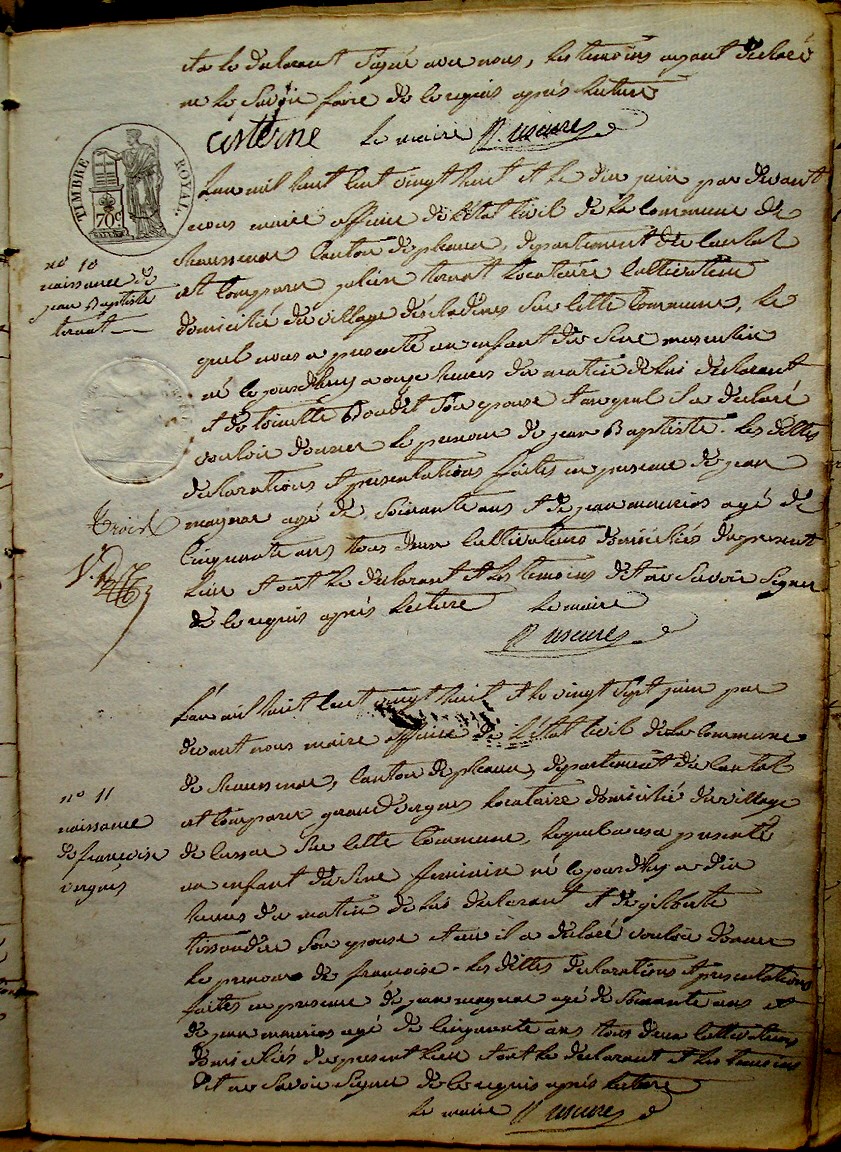 et a le declarant signé avec nous, les temoins ayant declaré
ne le savoir faire de ce requis après lecture
cisterne le maire
TIMBRE ROYAL
70c
L'an mil huit cent vingt huit et le dix juin par devant
nous maire officier de l'état civil de la commune de
chaussenac canton de pleaux, departement du cantal
no 10
naissance de
jean Baptiste
est comparu julien locataire cultivateur
domicilié du village de sur cette commune, le
quel nous a presenté un enfant du sexe masculin
né le jourdhuy a onze heures du matin de lui declarant
et de son epouse et auquel il a declaré
vouloir donner le prenom de jean Baptiste. les dittes
declarations et presentations faites en presence de jean
trois
magnac agé de soixante ans et de jean maurios agé de
cinquante ans tous deux cultivateurs domiciliés du present
lieu et ont le declarant et les temoins dit ne savoir signer
de ce requis après lecture le maire
L'an mil huit cent vingt huit et le vingt sept juin par
devant nous maire officier de l'état civil de la commune
de chaussenac, canton de pleaux, departement du cantal
no 11
naissance
de françoise
vergnes
est comparu vergnes locataire domicilié du village
de sur cette commune, lequel nous a presenté
un enfant du sexe feminin né le jourdhuy a dix
heures du matin de lui declarant et de gilberte
tissandier son epouse et au il a declaré vouloir donner
le prenom de françoise. les dittes declarations et presentations
faites en presence de jean magnac agé de soixante ans et
de jean maurios agé de cinquante ans tous deux cultivateurs
domiciliés du present lieu et ont le declarant et les temoins
dit ne savoir signer de ce requis après lecture
le maire